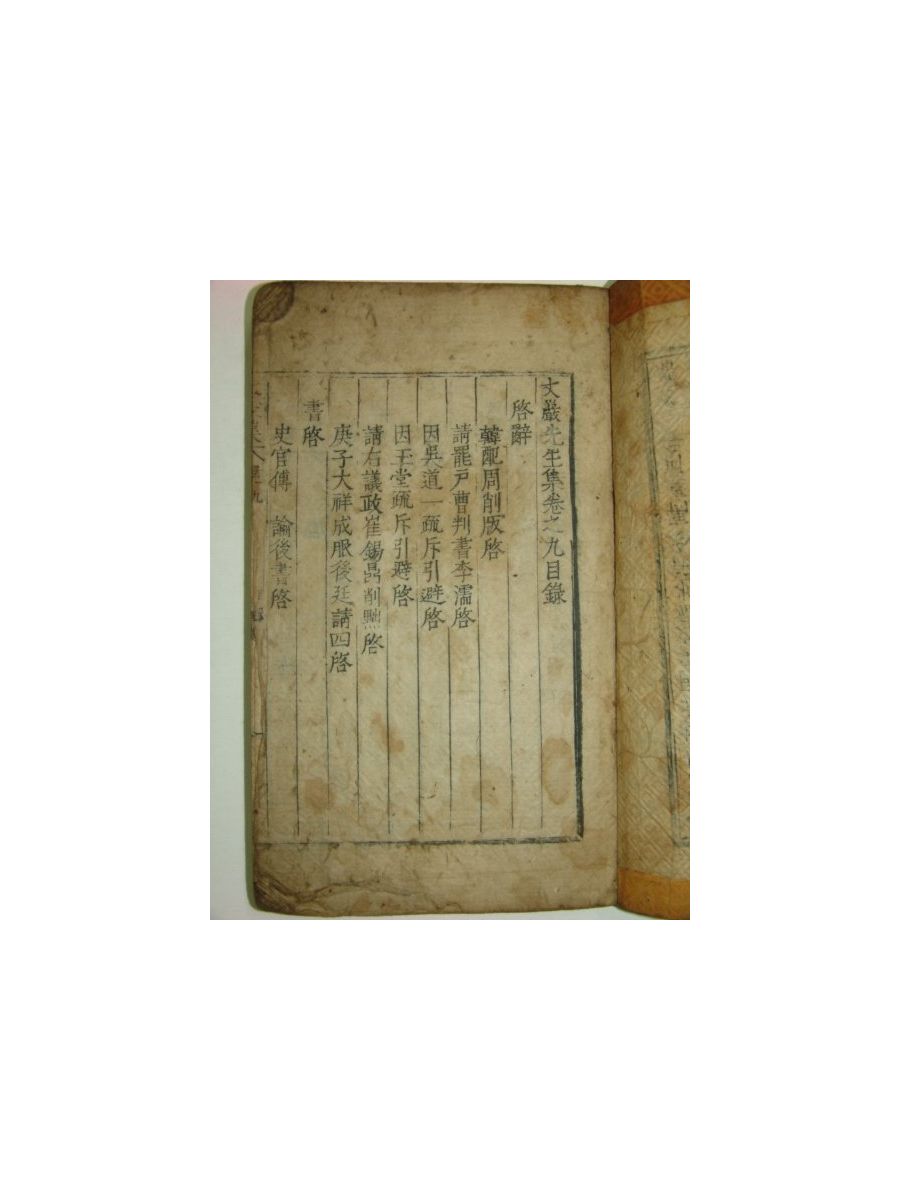 丈巖先生集卷之九目錄
啓辭
韓配周削版啓
請罷戶曹判書李濡啓
因吳道一疏斥引避啓
因玉堂疏斥引避啓
請右議政崔錫鼎削黜啓
庚子大祥成服後廷請四啓
書啓
史官傳諭後書啓